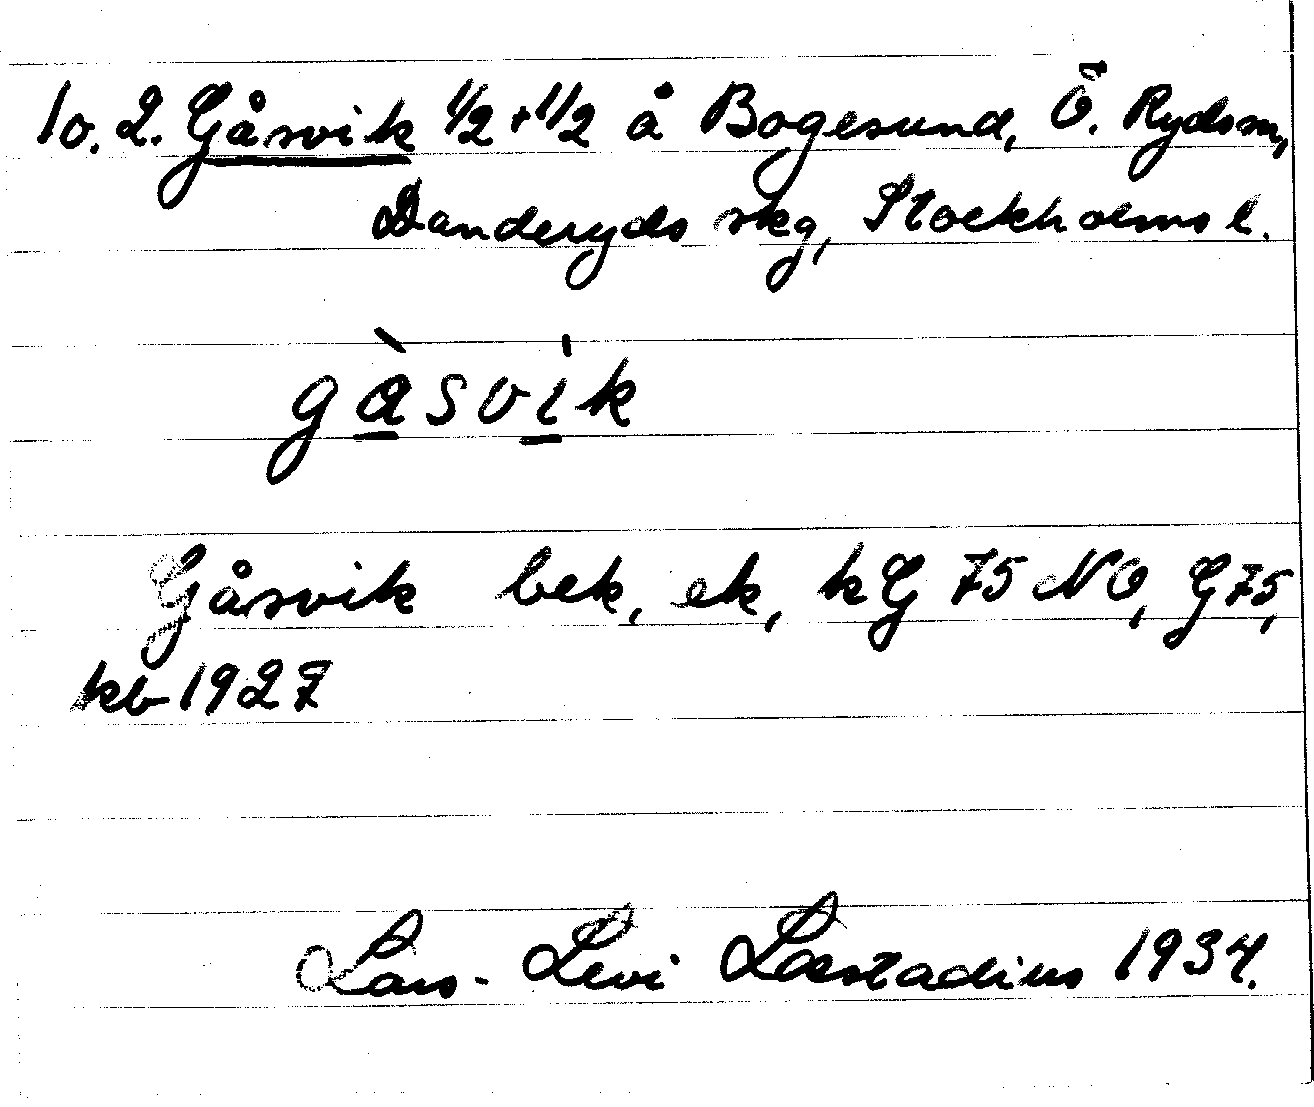 10. 2. Gåsvik 1/2 + 1/2 å Bogesund, Ö. Rydsm,
Danderyds skg, Stockholms l.
gàsvik
Gåsvik bek, ek, kG 75 NO, G75,
kb 1927
Lars-Levi Læstadius 1934.